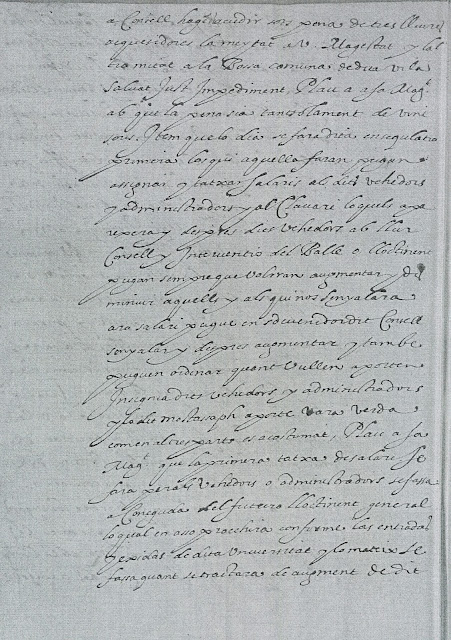 a Consell hagen acudir sots pena de tres lliures
aquesidores la meytat a sa Magestat y la l
tra mitat a la Bossa comuna de dita vila
salvat Just Impediment, Plau a sa Magt
ab que la pena sia tansolament de vint
sous. Item que lo dia se fara dita
primera los qui aquella faran pugan
assignar y tatxar salaris als dits Vehedors
y administradors y al Clavari loquels apa
rexera y despres dits Vehedors ab llur
Consell y Interventio del Balle o lloctinent
pugan sempre que Volrran augmentar y di
minuir aquells y als qui nos senyalara
ara salari pugue en sdevenidor dit Consell
senyalar y despres augmentar y tambe
puguen ordenar quant Vullen aporten
Insignia dits Vehedors y administradors
y lo dit mostasaph aporte vara verda
com en altres parts es acostumat, Plau a sa
Magt que la primera tatxa de salari se
fara per als Vehedors o administradors se fassa
a Coneguda del futuro lloctinent general
lo qual en asso procehira conforme las entradas
y exidas de dita Universitat y lo mateix se
fassa quant se tractara de augment de dit